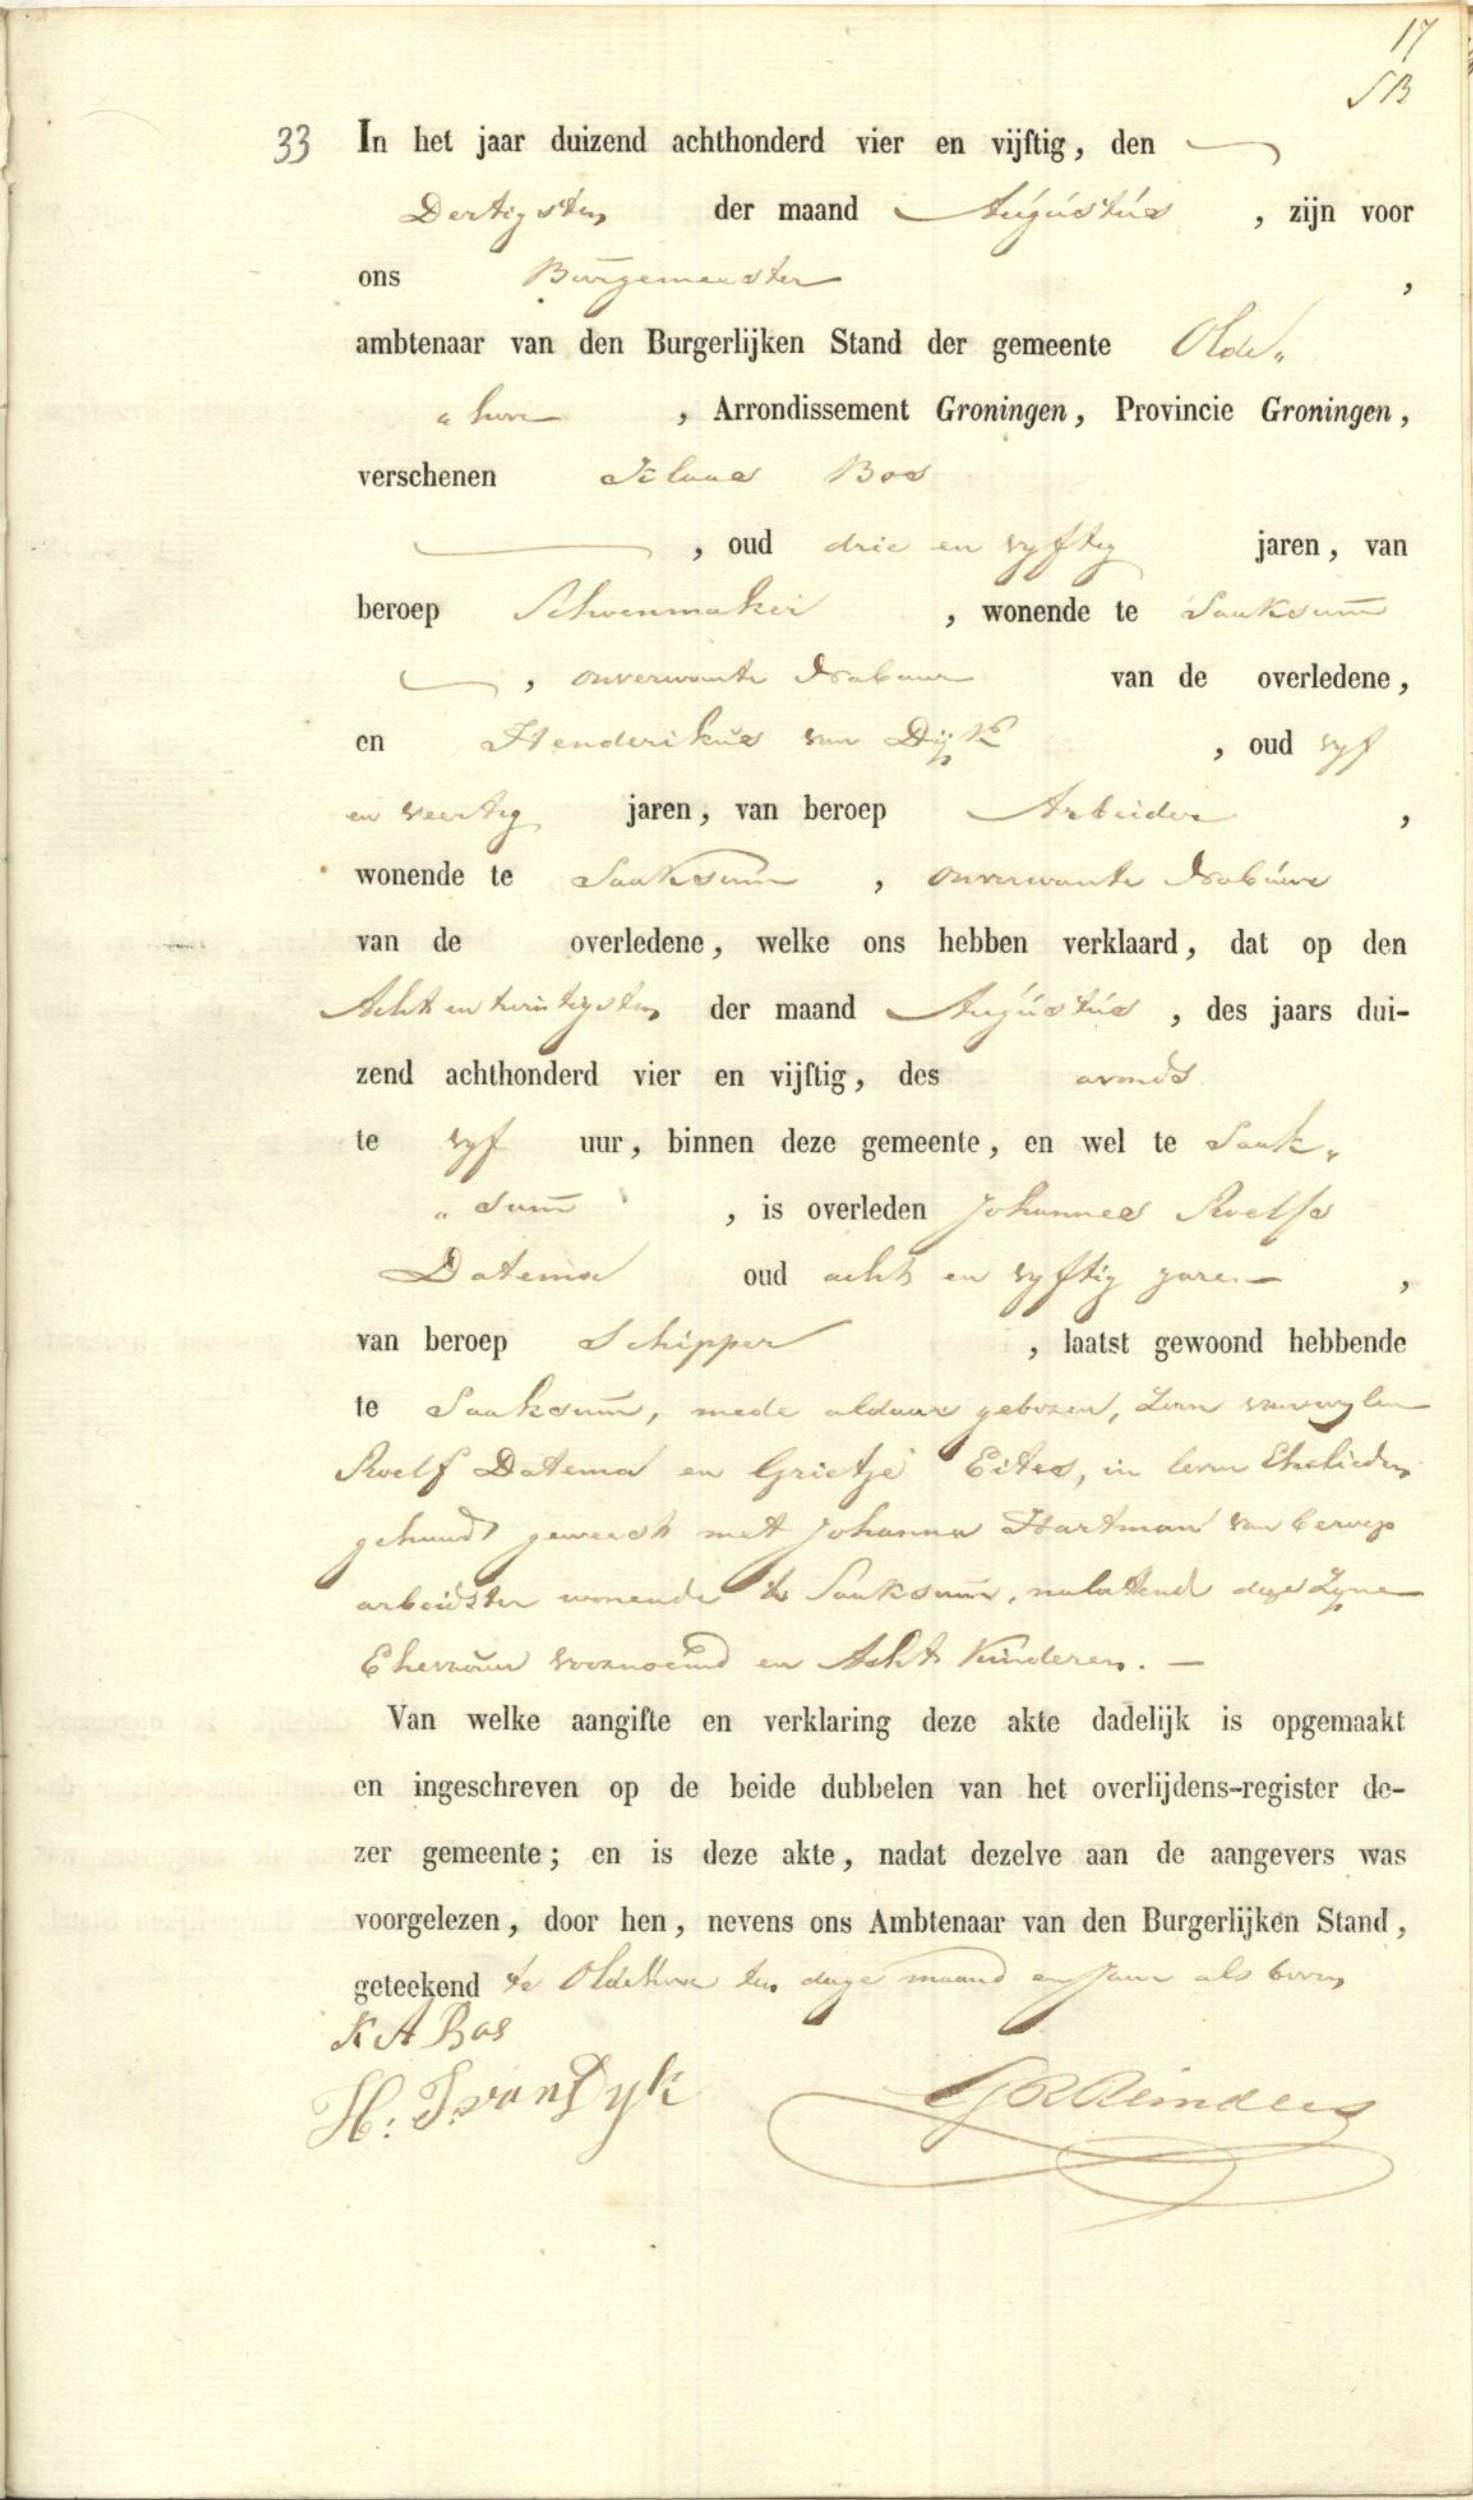 17
SB
33 In het jaar duizend achthonderd vier en vijftig, den
Dertigsten der maand Augustus, zijn voor
ons Burgemeester,
ambtenaar van den Burgerlijken Stand der gemeente Olde„
„hove, Arrondissement Groningen, Provincie Groningen,
verschenen Klaas Bos
, oud drie en vyftig jaren, van
beroep Schoenmaker, wonende te Saaksum
, onverwante Nabuur van de overledene,
en Henderikus van Dijk, oud vyf
en veertig jaren, van beroep Arbeider,
wonende te Saaksum, onverwante Nabuure
van de overledene, welke ons hebben verklaard, dat op den
Acht en twintigsten der maand Augustus, des jaars dui-
zend achthonderd vier en vijftig, des avonds
te vyf uur, binnen deze gemeente, en wel te Saak„
„sum, is overleden Johannes Roelfs
Datema oud acht en vyftig jaren,
van beroep Schipper, laatst gewoond hebbende
te Saaksum, mede aldaar geboren, Zoon van wylen
Roelf Datema en Grietje Eites, in leven Ehelieden
gehuwd geweest met Johanna Hartman van beroep
arbeidster wonende te Saaksum, nalatende deze Zyne
Ehevrouw voornoemd en Acht Kinderen.
Van welke aangifte en verklaring deze akte dadelijk is opgemaakt
en ingeschreven op de beide dubbelen van het overlijdens-register de-
zer gemeente; en is deze akte, nadat dezelve aan de aangevers was
voorgelezen, door hen, nevens ons Ambtenaar van den Burgerlijken Stand,
geteekend te Oldehove ten dage maand en Jaar als boven
K A Bos
H. J. van Dyk
G R Reinders